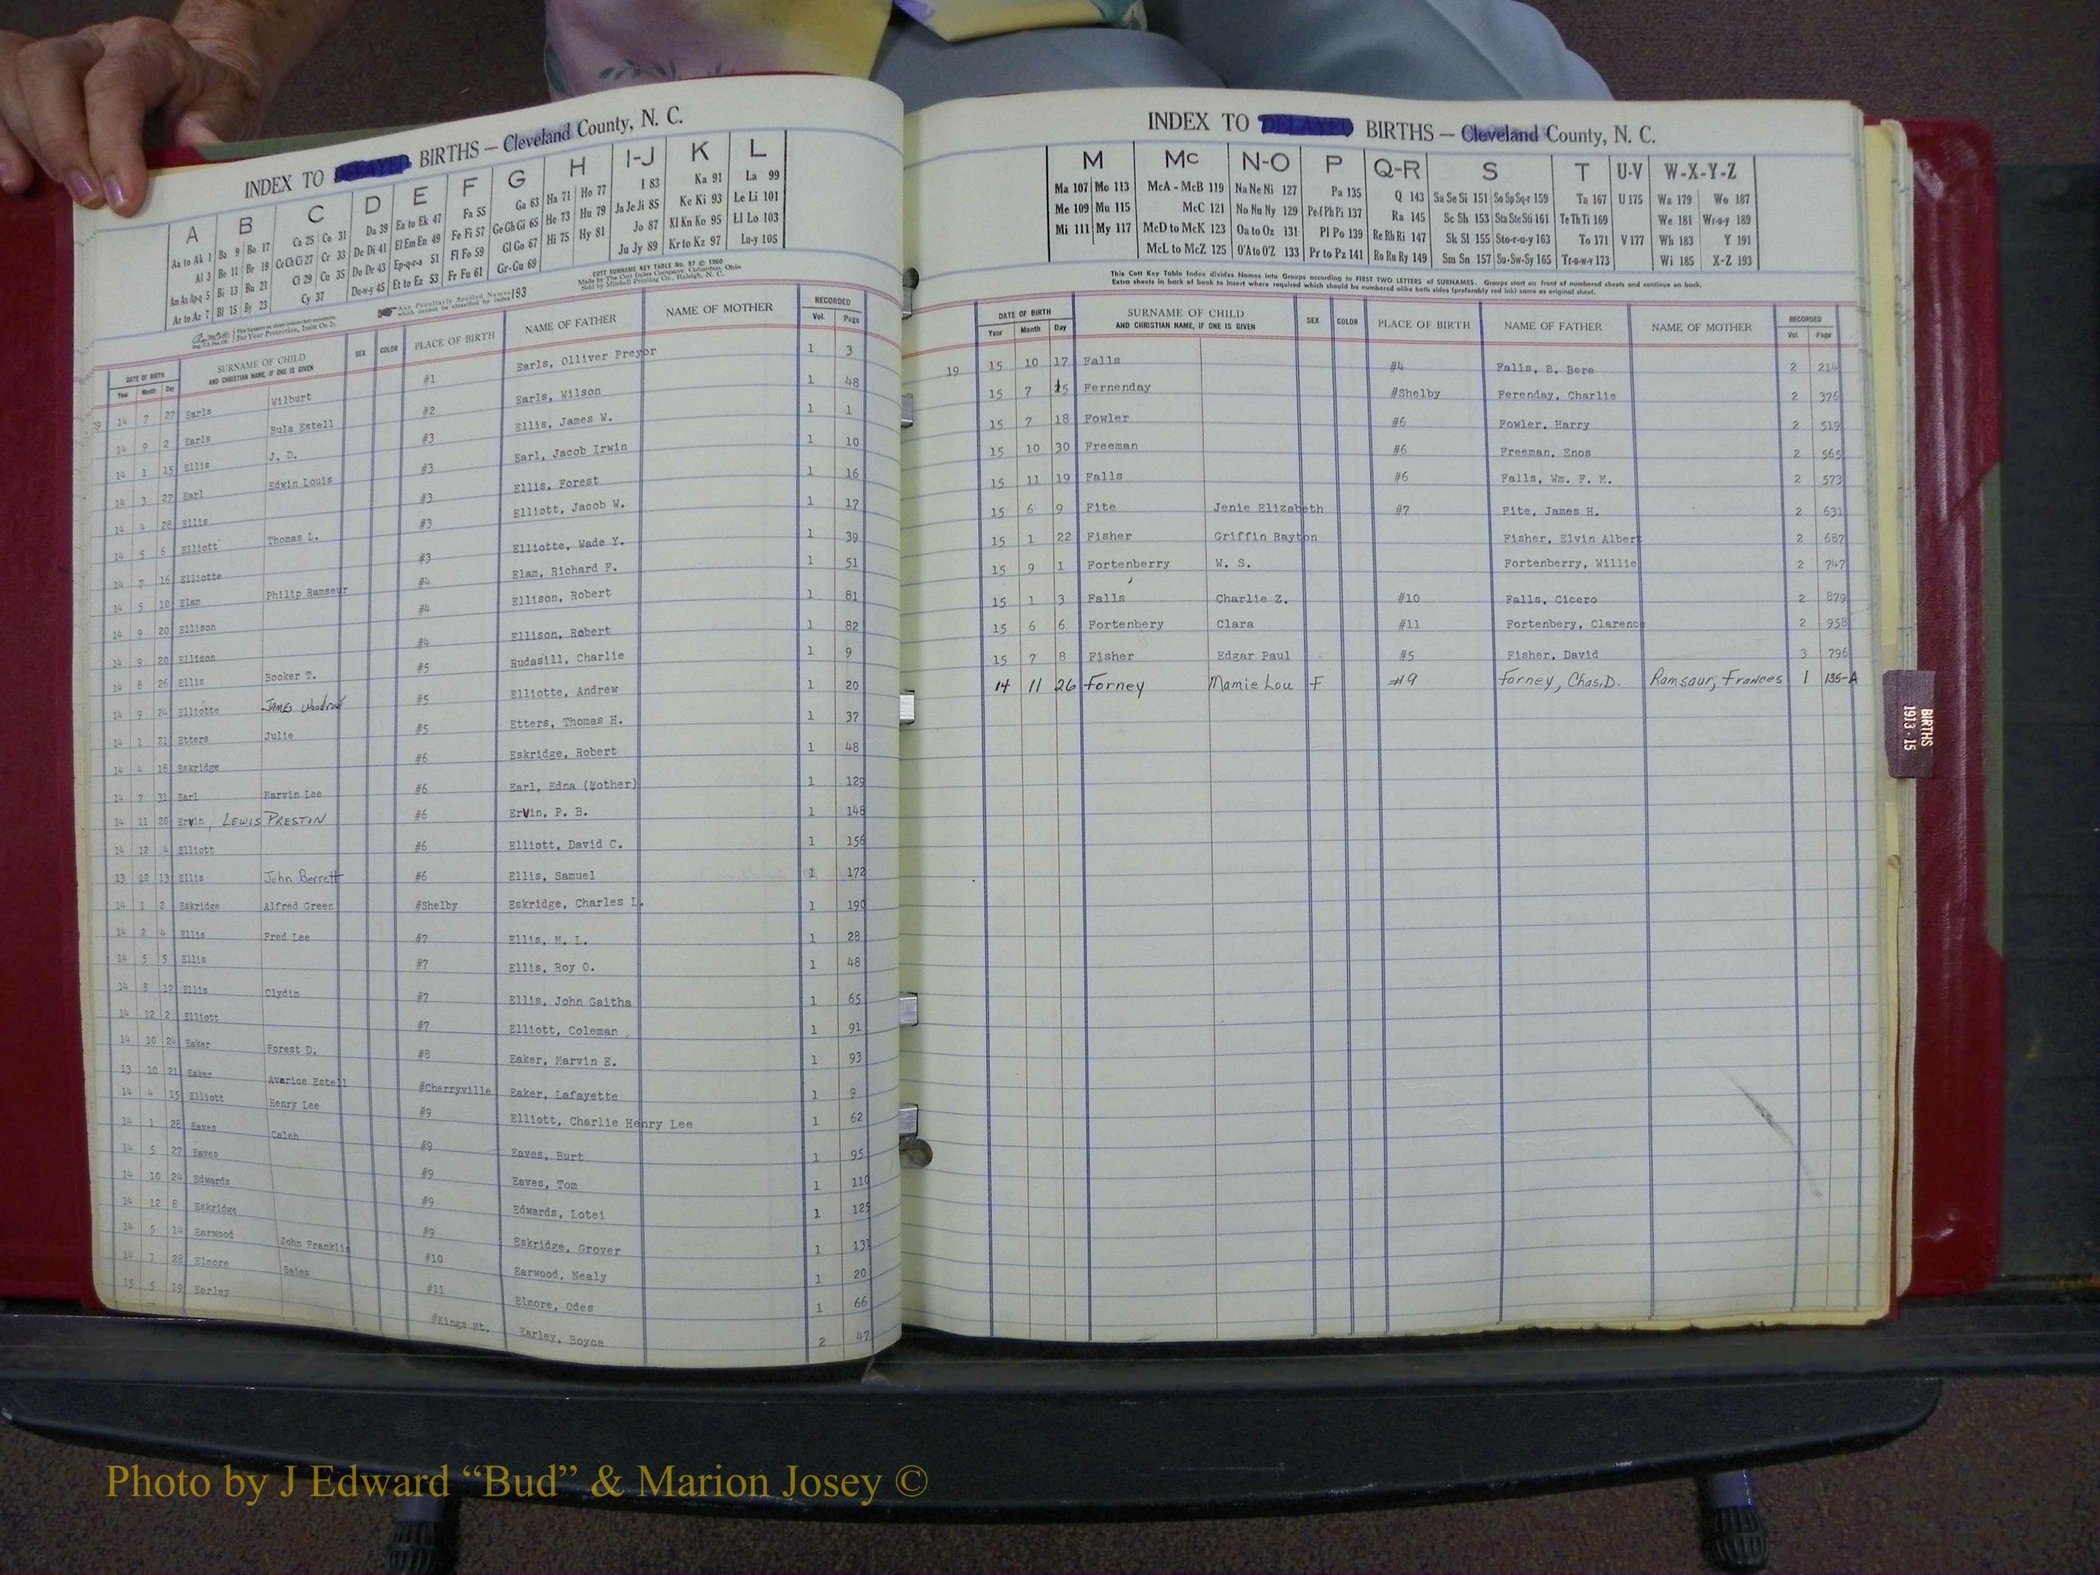 INDEX TO DELAYED BIRTHS — Cleveland County, N. C.
A B C D E F G H I-J K L
Aa to Ak 1 Ba 9 Bo 17 Ca 25 Co 31 Da 39 Ea to Ek 47 Fa 55 Ga 63 Ha 71 Ho 77 I 83 Ka 91 La 99
Al 3 Be 11 Br 19 Ce Ch Ci 27 Cr 33 De Di 41 El Em En 49 Fe Fi 57 Ge Gh Gi 65 He 73 Hu 79 Ja Je Ji 85 Ke Ki 93 Le Li 101
Am An Ap-q 5 Bi 13 Bu 21 Cl 29 Cu 35 Do Dr 43 Ep-q-r-s 51 Fl Fo 59 Gl Go 67 Hi 75 Hy 81 Jo 87 Kl Kn Ko 95 Ll Lo 103
Ar to Az 7 Bl 15 By 23 Cy 37 Du-w-y 45 Et to Ez 53 Fr Fu 61 Gr-Gu 69 Ju Jy 89 Kr to Kz 97 Lu-y 105
COTT SURNAME KEY TABLE No. 87 © 1960
Made by The Cott Index Company, Columbus, Ohio
Sold by Mitchell Printing Co., Raleigh, N. C.
For Your Protection, Insist On It.
Any Peculiarly Spelled Names which cannot be classified by Index 193
DATE OF BIRTH Year Month Day SURNAME OF CHILD AND CHRISTIAN NAME, IF ONE IS GIVEN SEX COLOR PLACE OF BIRTH NAME OF FATHER NAME OF MOTHER RECORDED Vol. Page
19 14 7 27 Earls Wilburt #1 Earls, Olliver Preyor 1 3
14 9 2 Earls Eula Estell #2 Earls, Wilson 1 48
14 1 15 Ellis J. D. #3 Ellis, James W. 1 1
14 3 27 Earl Edwin Louis #3 Earl, Jacob Irwin 1 10
14 4 28 Ellis #3 Ellis, Forest 1 16
14 5 6 Elliott Thomas L. #3 Elliott, Jacob W. 1 17
14 7 16 Elliotte #3 Elliotte, Wade Y. 1 39
14 5 10 Elam Philip Ramseur #4 Elam, Richard F. 1 51
14 9 20 Ellison #4 Ellison, Robert 1 81
14 9 20 Ellison #4 Ellison, Robert 1 82
14 8 26 Ellis Booker T. #5 Rudasill, Charlie 1 9
14 9 24 Elliotte James Woodrow #5 Elliotte, Andrew 1 20
14 1 21 Etters Julie #5 Etters, Thomas H. 1 37
14 4 18 Eskridge #6 Eskridge, Robert 1 48
14 7 31 Earl Marvin Lee #6 Earl, Edna (Mother) 1 129
14 11 20 Ervin, LEWIS PRESTIN #6 Ervin, P. B. 1 148
14 12 4 Elliott #6 Elliott, David C. 1 156
13 12 13 Ellis John Berrett #6 Ellis, Samuel 1 172
14 1 2 Eskridge Alfred Green #Shelby Eskridge, Charles L. 1 190
14 2 4 Ellis Fred Lee #7 Ellis, M. L. 1 28
14 5 5 Ellis #7 Ellis, Roy O. 1 48
14 8 17 Ellis Clydim #7 Ellis, John Gaitha 1 65
14 12 2 Elliott #7 Elliott, Coleman 1 91
14 10 24 Eaker Forest D. #8 Eaker, Marvin E. 1 93
13 10 21 Eaker Avarice Estell #Cherryville Eaker, Lafayette 1 9
14 4 15 Elliott Henry Lee #9 Elliott, Charlie Henry Lee 1 62
14 1 28 Eaves Caleb #9 Eaves, Burt 1 95
14 5 27 Eaves #9 Eaves, Tom 1 110
14 10 24 Edwards #9 Edwards, Lotei 1 125
14 12 8 Eskridge #9 Eskridge, Grover 1 131
14 5 14 Earwood John Franklin #10 Earwood, Nealy 1 20
14 1 28 Elmore Sates #11 Elmore, Odes 1 66
15 5 19 Earley #Kings Mt. Earley, Boyce 2 47
INDEX TO DELAYED BIRTHS — Cleveland County, N. C.
M Mc N-O P Q-R S T U-V W-X-Y-Z
Ma 107 Mo 113 McA - McB 119 Na Ne Ni 127 Pa 135 Q 143 Sa Se Si 151 So Sp Sq-r 159 Ta 167 U 175 Wa 179 Wo 187
Me 109 Mu 115 McC 121 No Nu Ny 129 Pe-f Ph Pi 137 Ra 145 Sc Sh 153 Sta Ste Sti 161 Te Th Ti 169 We 181 Wr-u-y 189
Mi 111 My 117 McD to McK 123 Oa to Oz 131 Pl Po 139 Re Rh Ri 147 Sk Sl 155 Sto-r-u-y 163 To 171 V 177 Wh 183 Y 191
McL to McZ 125 O'A to O'Z 133 Pr to Pz 141 Ro Ru Ry 149 Sm Sn 157 Su-Sw-Sy 165 Tr-u-w-y 173 Wi 185 X-Z 193
This Cott Key Table Index divides Names into Groups according to FIRST TWO LETTERS of SURNAMES. Groups start on front of numbered sheets and continue on back.
Extra sheets in back of book to insert where required which should be numbered alike both sides (preferably red ink) same as original sheet.
DATE OF BIRTH Year Month Day SURNAME OF CHILD AND CHRISTIAN NAME, IF ONE IS GIVEN SEX COLOR PLACE OF BIRTH NAME OF FATHER NAME OF MOTHER RECORDED Vol. Page
19 15 10 17 Falls #4 Falls, B. Bere 2 214
15 7 15 Fernenday #Shelby Ferenday, Charlie 2 376
15 7 18 Fowler #6 Fowler, Harry 2 519
15 10 30 Freeman #6 Freeman, Enos 2 565
15 11 19 Falls #6 Falls, Wm. F. M. 2 573
15 6 9 Fite Jenie Elizabeth #7 Fite, James H. 2 631
15 1 22 Fisher Griffin Rayton Fisher, Elvin Albert 2 687
15 9 1 Fortenberry W. S. Fortenberry, Willie 2 747
15 1 3 Falls Charlie Z. #10 Falls, Cicero 2 879
15 6 6 Fortenbery Clara #11 Fortenbery, Clarence 2 958
15 7 8 Fisher Edgar Paul #5 Fisher, David 3 796
14 11 26 Forney Mamie Lou F #9 Forney, Chas. D. Ramsaur, Frances 1 135-A
BIRTHS
1913-15
Photo by J Edward “Bud” & Marion Josey ©